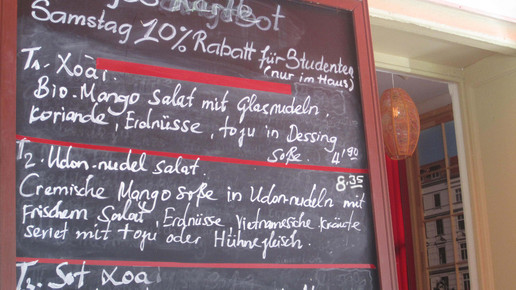 Samstag 10% Rabatt für Studenten
(nur im Haus)
T1. Xoài.
Bio. Mango Salat mit Glasnudeln,
Koriande, Erdnüsse, tofu in Dessing
Soße. 4,90
T2. Udon-nudel Salat. 8.35
Cremische Mango Soße in Udon-nudeln mit
Frischem Salat, Erdnüsse, Vietnamesische Kräute
seriet mit tofu oder Hühnefleisch.
T3. Sot Xoa